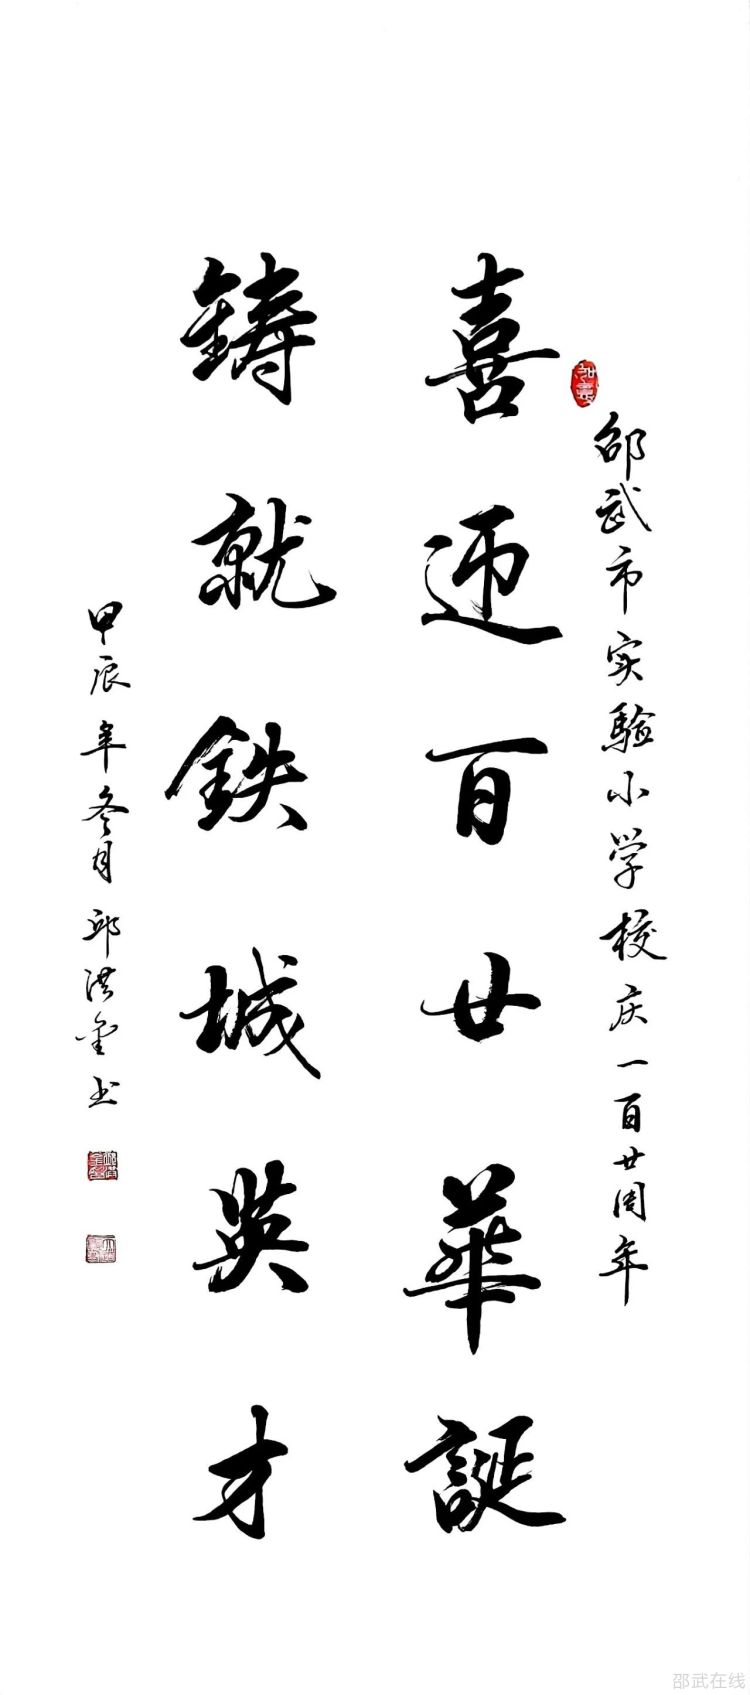 邵武市实验小学校庆一百廿周年
喜迎百廿華誕
鑄就鉄城英才
甲辰年冬月邱洪金书
如意
邵武在线